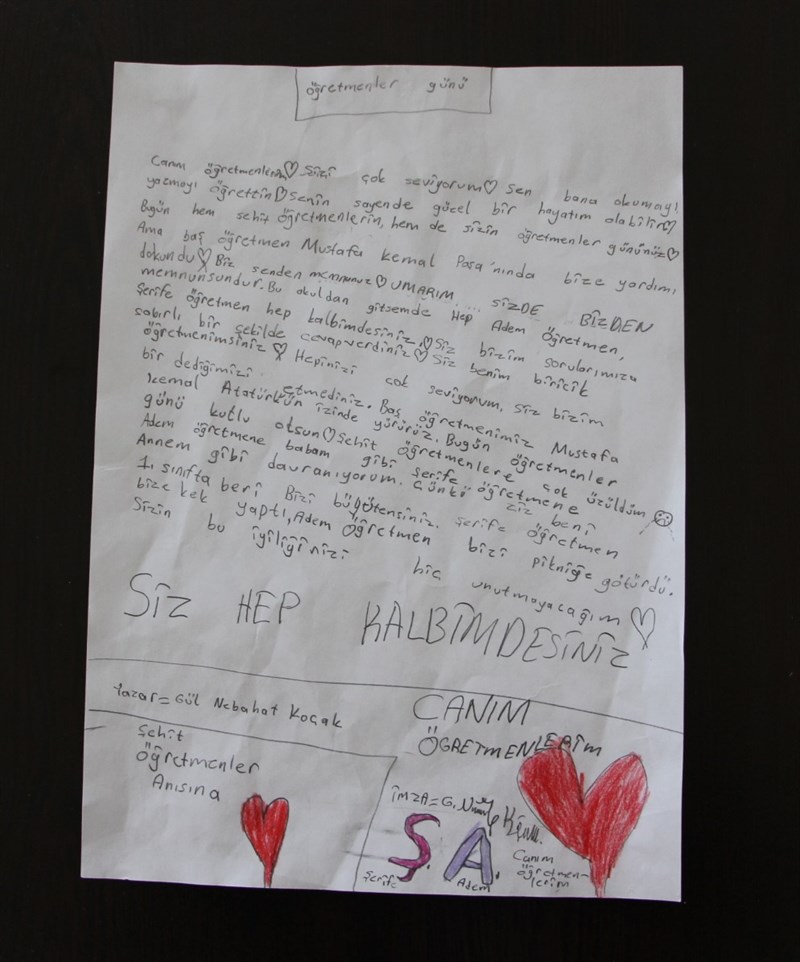 öğretmenler günü
Canım öğretmenlerim♡ Sizi çok seviyorum♡ Sen bana okumayı
yazmayı öğrettin♡ Senin sayende gücel bir hayatım olabilir♡
Bugün hem şehit öğretmenlerin, hem de sizin öğretmenler gününüz♡
Ama baş öğretmen Mustafa kemal Paşa'nında bize yardımı
dokundu♡ Biz senden memnunuz♡ UMARIM... SİZDE BİZDEN
memnunsundur. Bu okuldan gitsemde Hep Adem öğretmen,
Şerife öğretmen hep kalbimdesiniz.♡ Siz bizim sorularımıza
sabırlı bir şekilde cevap verdiniz♡ Siz benim biricik
öğretmenimsiniz♡ Hepinizi çok seviyorum, siz bizim
bir dediğimizi etmediniz. Baş öğretmenimiz Mustafa
kemal Atatürkün izinde yürürüz. Bugün öğretmenler
günü kutlu olsun♡ Şehit öğretmenlere çok üzüldüm
Adem öğretmene babam gibi Şerife öğretmene
Annem gibi davranıyorum. Çünkü ziz beni
1. sınıfta beri Bizi büğütensiniz. Şerife öğretmen
bize kek yaptı, Adem öğretmen bizi pikniğe götürdü.
Sizin bu iyiliğinizi hiç unutmayacağım♡
SİZ HEP KALBİMDESİNİZ
Yazar= Gül Nebahat Koçak
CANIM
ÖĞRETMENLERİM
Şehit
öğretmenler
Anısına
İMZA= G.
Ş. A.
Şerife Adem
Canım
öğretmen-
lerim